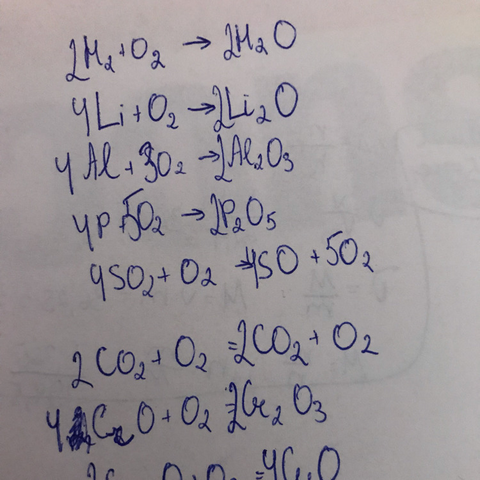 2H₂ + O₂ → 2H₂O
4Li + O₂ → 2Li₂O
4Al + 3O₂ → 2Al₂O₃
4P + 5O₂ → 2P₂O₅
4SO₂ + O₂ → 4SO + 5O₂
2CO₂ + O₂ = 2CO₂ + O₂
4 O + O₂ = 2Cr₂O₃
= 4CuO